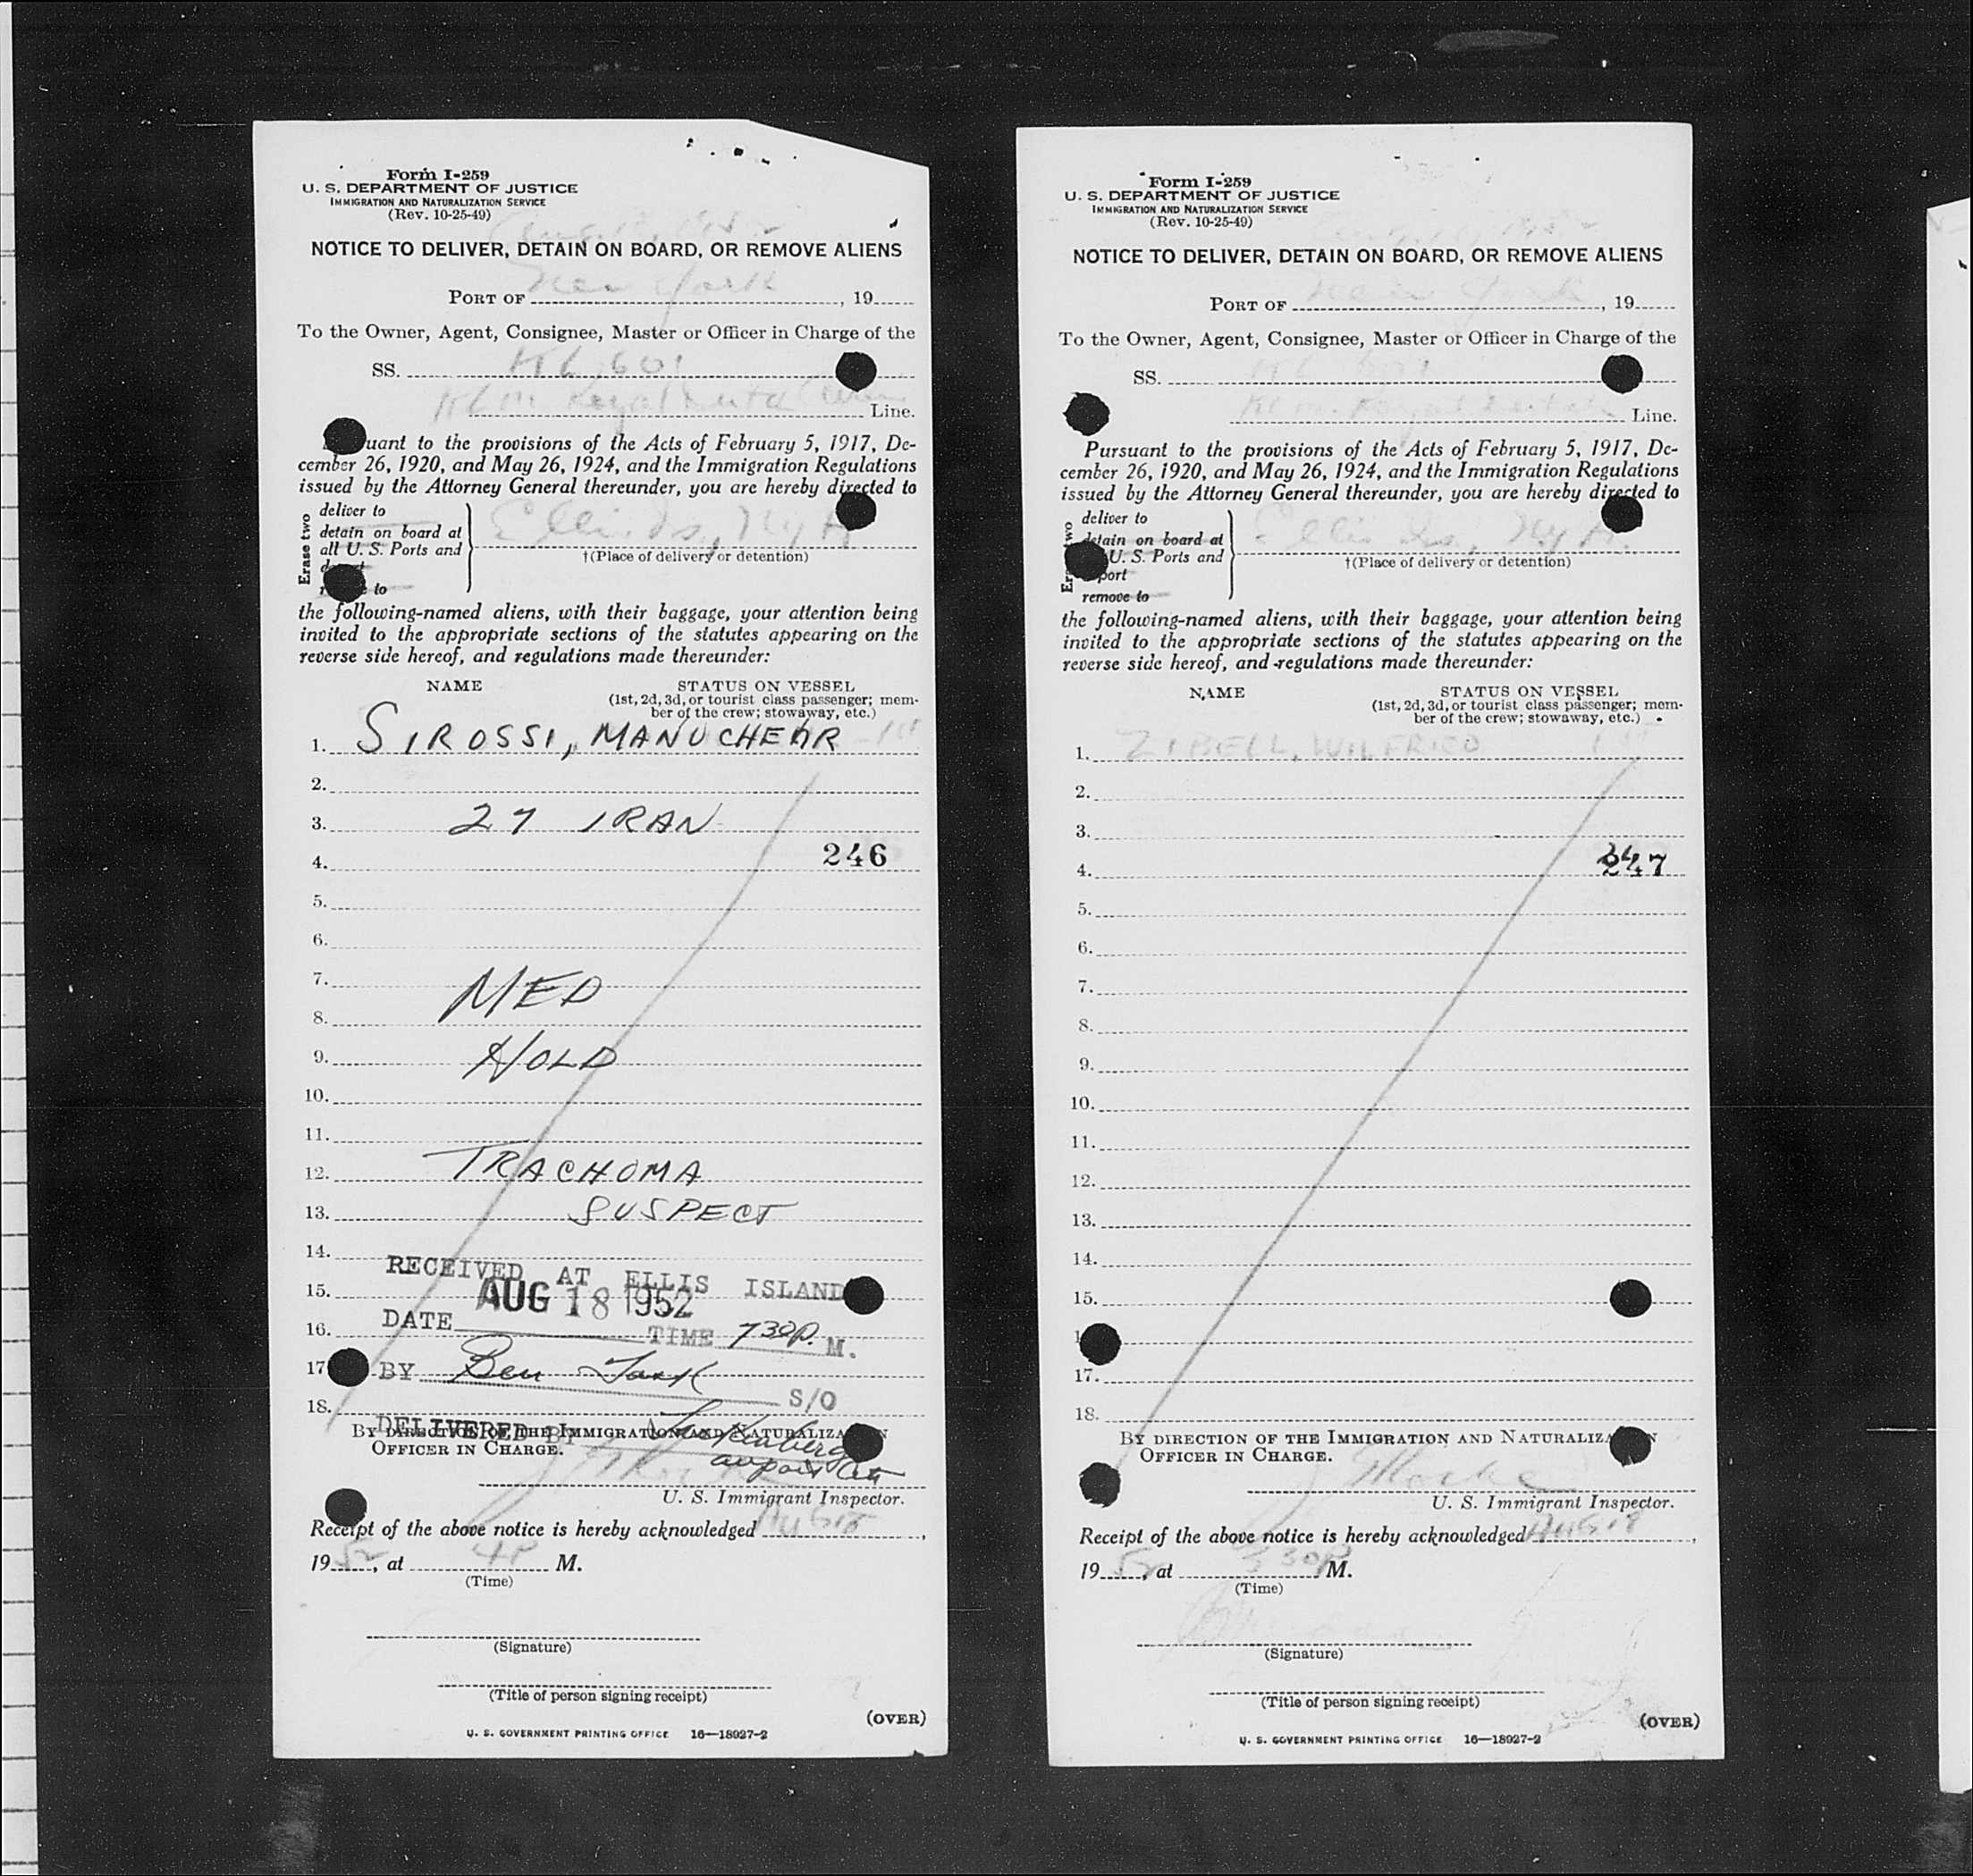 Form I-259
U. S. DEPARTMENT OF JUSTICE
IMMIGRATION AND NATURALIZATION SERVICE
(Rev. 10-25-49)
NOTICE TO DELIVER, DETAIN ON BOARD, OR REMOVE ALIENS
New York
PORT OF , 19
To the Owner, Agent, Consignee, Master or Officer in Charge of the
SS. KL 601
KLM Royal Dutch Line.
uant to the provisions of the Acts of February 5, 1917, De-
cember 26, 1920, and May 26, 1924, and the Immigration Regulations
issued by the Attorney General thereunder, you are hereby directed to
Erase two
deliver to
detain on board at
all U. S. Ports and
to
†(Place of delivery or detention)
the following-named aliens, with their baggage, your attention being
invited to the appropriate sections of the statutes appearing on the
reverse side hereof, and regulations made thereunder:
NAME STATUS ON VESSEL
(1st, 2d, 3d, or tourist class passenger; mem-
ber of the crew; stowaway, etc.)
1. SIROSSI, MANUCHEHR 1st
2.
3. 27 IRAN
4. 246
5.
6.
7. MED
8.
9. HOLD
10.
11.
12. TRACHOMA
13. SUSPECT
14.
RECEIVED AT ELLIS ISLAND
15. AUG 18 1952
DATE
16. TIME 730P. M.
17 BY Ben
S/O
18.
DELIVERED BY
BY DIRECTION OF THE IMMIGRATION AND NATURALIZA N
OFFICER IN CHARGE.
U. S. Immigrant Inspector.
Receipt of the above notice is hereby acknowledged Aug 18,
19 52, at 4P M.
(Time)
(Signature)
(Title of person signing receipt)
(OVER)
U. S. GOVERNMENT PRINTING OFFICE 16—18927-2
Form I-259
U. S. DEPARTMENT OF JUSTICE
IMMIGRATION AND NATURALIZATION SERVICE
(Rev. 10-25-49)
NOTICE TO DELIVER, DETAIN ON BOARD, OR REMOVE ALIENS
New York
PORT OF , 19
To the Owner, Agent, Consignee, Master or Officer in Charge of the
SS. KL 601
KLM Royal Dutch Line.
Pursuant to the provisions of the Acts of February 5, 1917, De-
cember 26, 1920, and May 26, 1924, and the Immigration Regulations
issued by the Attorney General thereunder, you are hereby directed to
two
deliver to
detain on board at
U. S. Ports and
port
remove to
†(Place of delivery or detention)
the following-named aliens, with their baggage, your attention being
invited to the appropriate sections of the statutes appearing on the
reverse side hereof, and regulations made thereunder:
NAME STATUS ON VESSEL
(1st, 2d, 3d, or tourist class passenger; mem-
ber of the crew; stowaway, etc.)
1. ZIBELL, WILFRIED 1st
2.
3.
4. 247
5.
6.
7.
8.
9.
10.
11.
12.
13.
14.
15.
1
17.
18.
BY DIRECTION OF THE IMMIGRATION AND NATURALIZA N
OFFICER IN CHARGE.
U. S. Immigrant Inspector.
Receipt of the above notice is hereby acknowledged Aug 18,
19 52, at 330P M.
(Time)
(Signature)
(Title of person signing receipt)
(OVER)
U. S. GOVERNMENT PRINTING OFFICE 16—18927-2